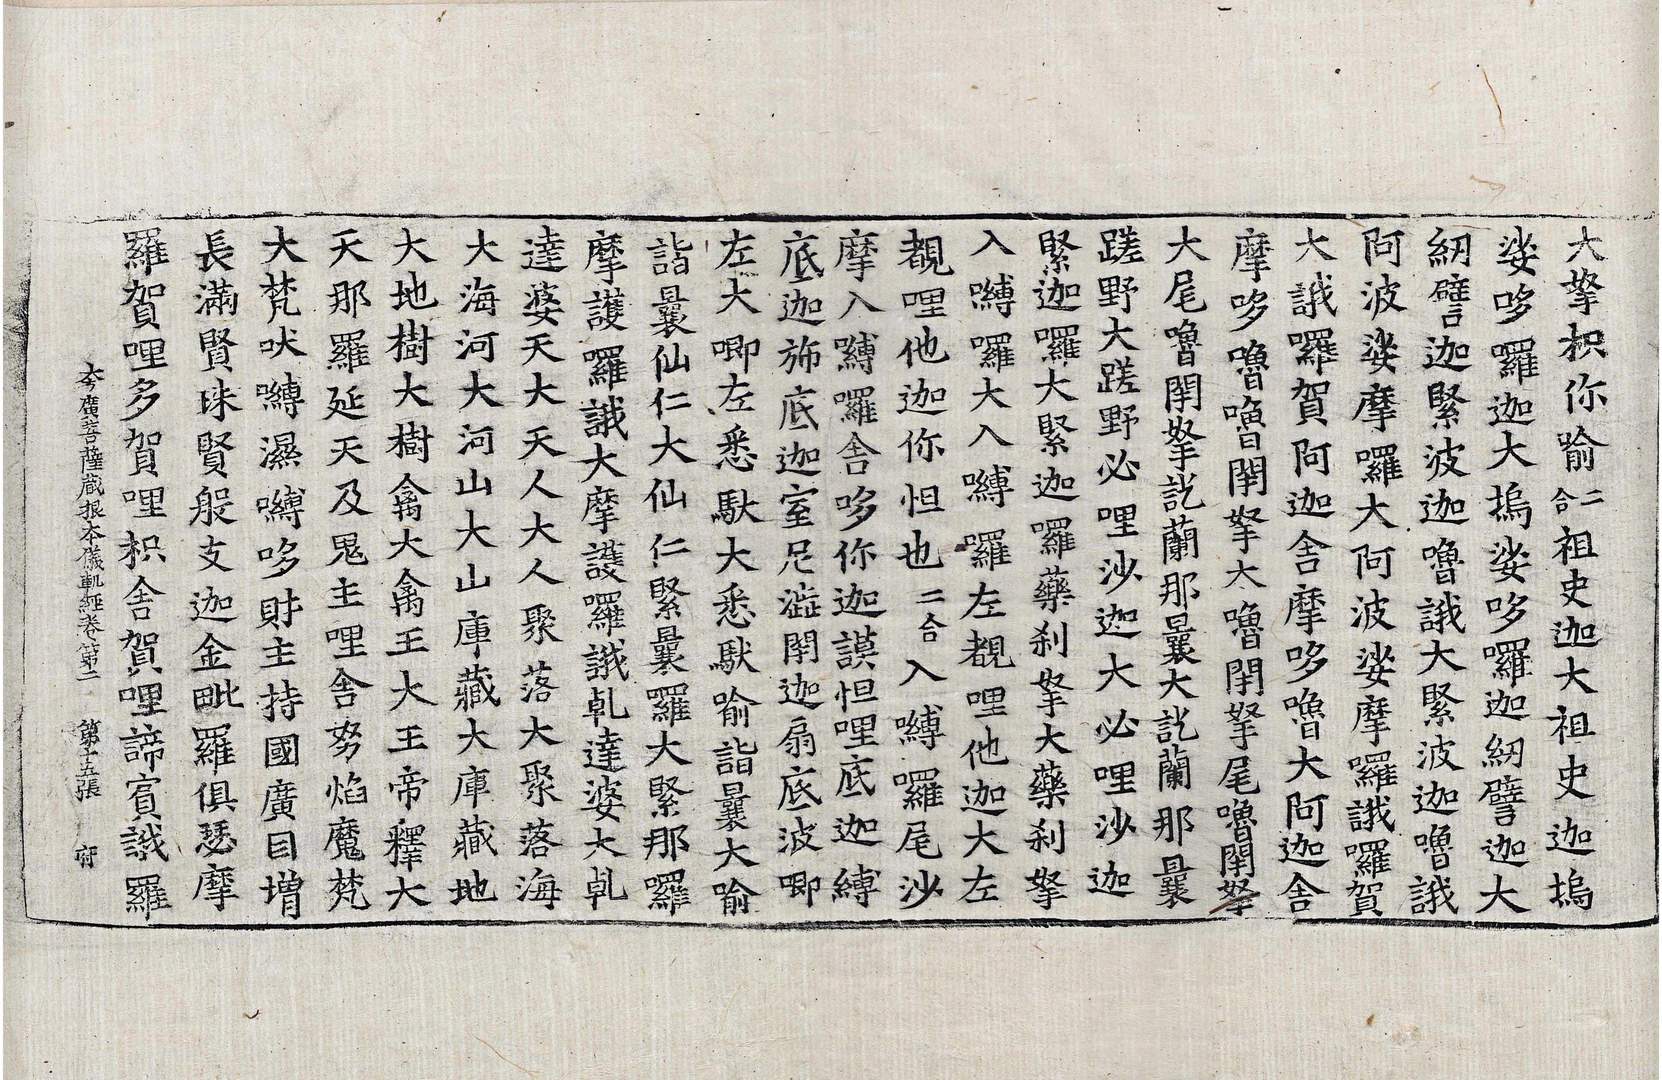 大拏枳你喻二合祖史迦大祖史迦塢
娑哆羅迦大塢娑哆囉迦紉譬迦大
紉譬迦緊波迦嚕誐大緊波迦嚕誐
阿波娑摩囉大阿波娑摩囉誐囉賀
大誐囉賀阿迦舍摩哆嚕大阿迦舍
摩哆嚕嚕閉拏大嚕閉拏尾嚕閉拏
大尾嚕閉拏訖蘭那曩大訖蘭那曩
蹉野大蹉野必哩沙迦大必哩沙迦
緊迦囉大緊迦囉藥刹拏大藥刹拏
入嚩囉大入嚩囉左覩哩他迦大左
覩哩他迦你怛也二合入嚩囉尾沙
摩入嚩囉舍哆你迦謨怛哩底迦縛
底迦施底迦室尼澁閉迦扇底波唧
左大唧左悉馱大悉馱喻詣曩大喻
詣曩仙仁大仙仁緊曩羅大緊那囉
摩護羅誐大摩護囉誐乹達婆大乹
達婆天大天人大人聚落大聚落海
大海河大河山大山庫藏大庫藏地
大地樹大樹禽大禽王大王帝釋大
天那羅延天及鬼主哩舍努焰魔梵
大梵吠嚩濕嚩哆財主持國廣目增
長滿賢珠賢般支迦金毗羅俱瑟摩
羅賀哩多賀哩枳舍賀哩諦賓誐羅
大方廣菩薩藏根本儀軌經卷第二 第十五張 府